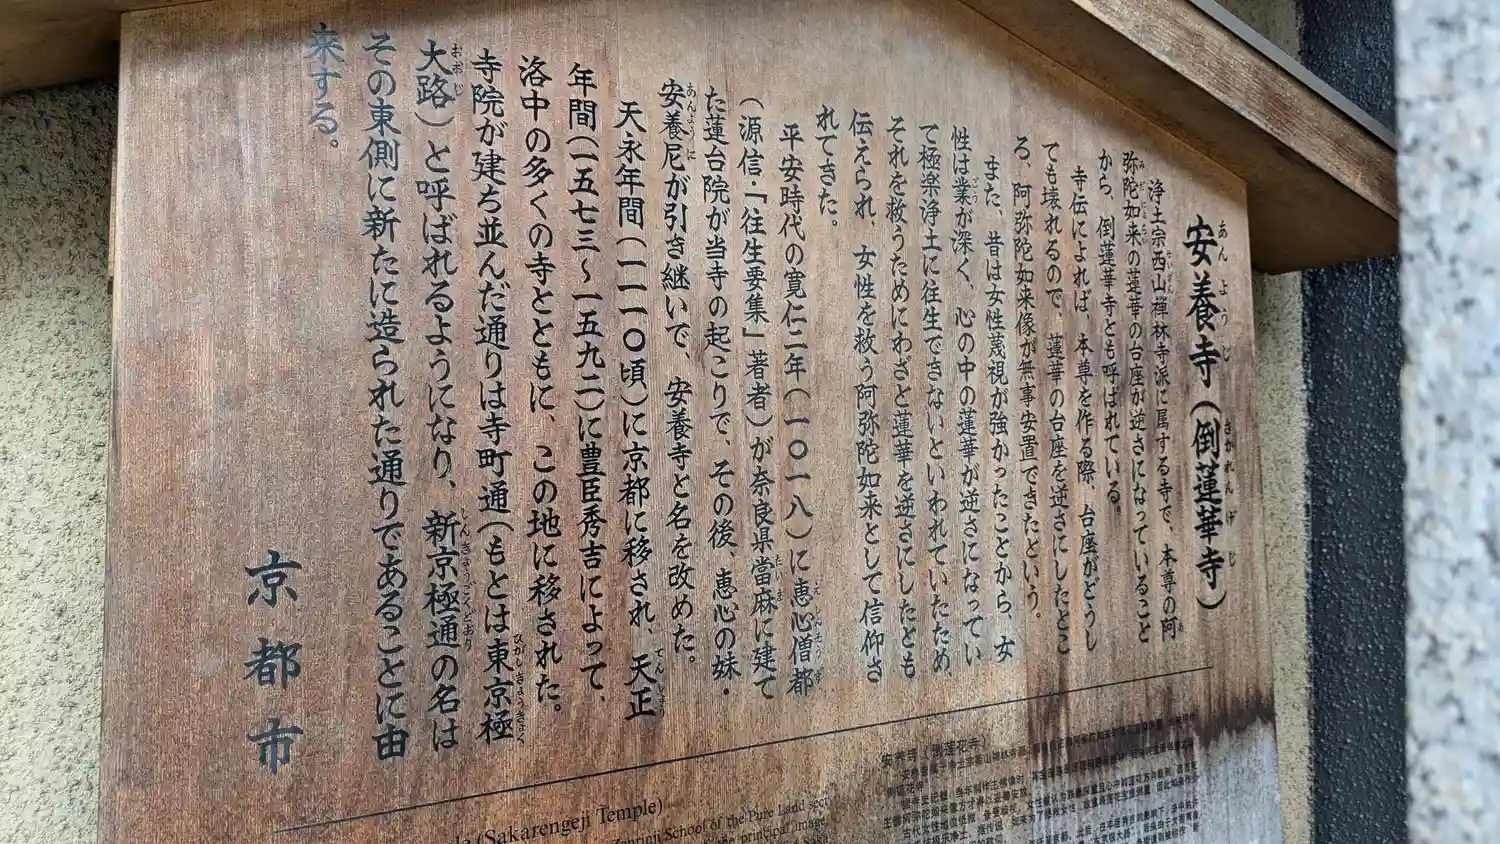 安養寺(倒蓮華寺)
浄土宗西山禅林寺派に属する寺で、本尊の阿
弥陀如来の蓮華の台座が逆さになっていること
から、倒蓮華寺とも呼ばれている。
寺伝によれば、本尊を作る際、台座がどうし
ても壊れるので、蓮華の台座を逆さにしたとこ
ろ、阿弥陀如来像が無事安置できたという。
また、昔は女性蔑視が強かったことから、女
性は業が深く、心の中の蓮華が逆さになってい
て極楽浄土に往生できないといわれていたため、
それを救うためにわざと蓮華を逆さにしたとも
伝えられ、女性を救う阿弥陀如来として信仰さ
れてきた。
平安時代の寛仁二年(一〇一八)に恵心僧都
(源信・「往生要集」著者)が奈良県當麻に建て
た蓮台院が当寺の起こりで、その後、恵心の妹・
安養尼が引き継いで、安養寺と名を改めた。
天永年間(一一一〇頃)に京都に移され、天正
年間(一五七三～一五九二)に豊臣秀吉によって、
洛中の多くの寺とともに、この地に移された。
寺院が建ち並んだ通りは寺町通(もとは東京極
大路)と呼ばれるようになり、新京極通の名は
その東側に新たに造られた通りであることに由
来する。
京都市
(Sakarengeji Temple)
Zenrinji School of the Pure Land sect
the principal image
安养寺(倒莲花寺)